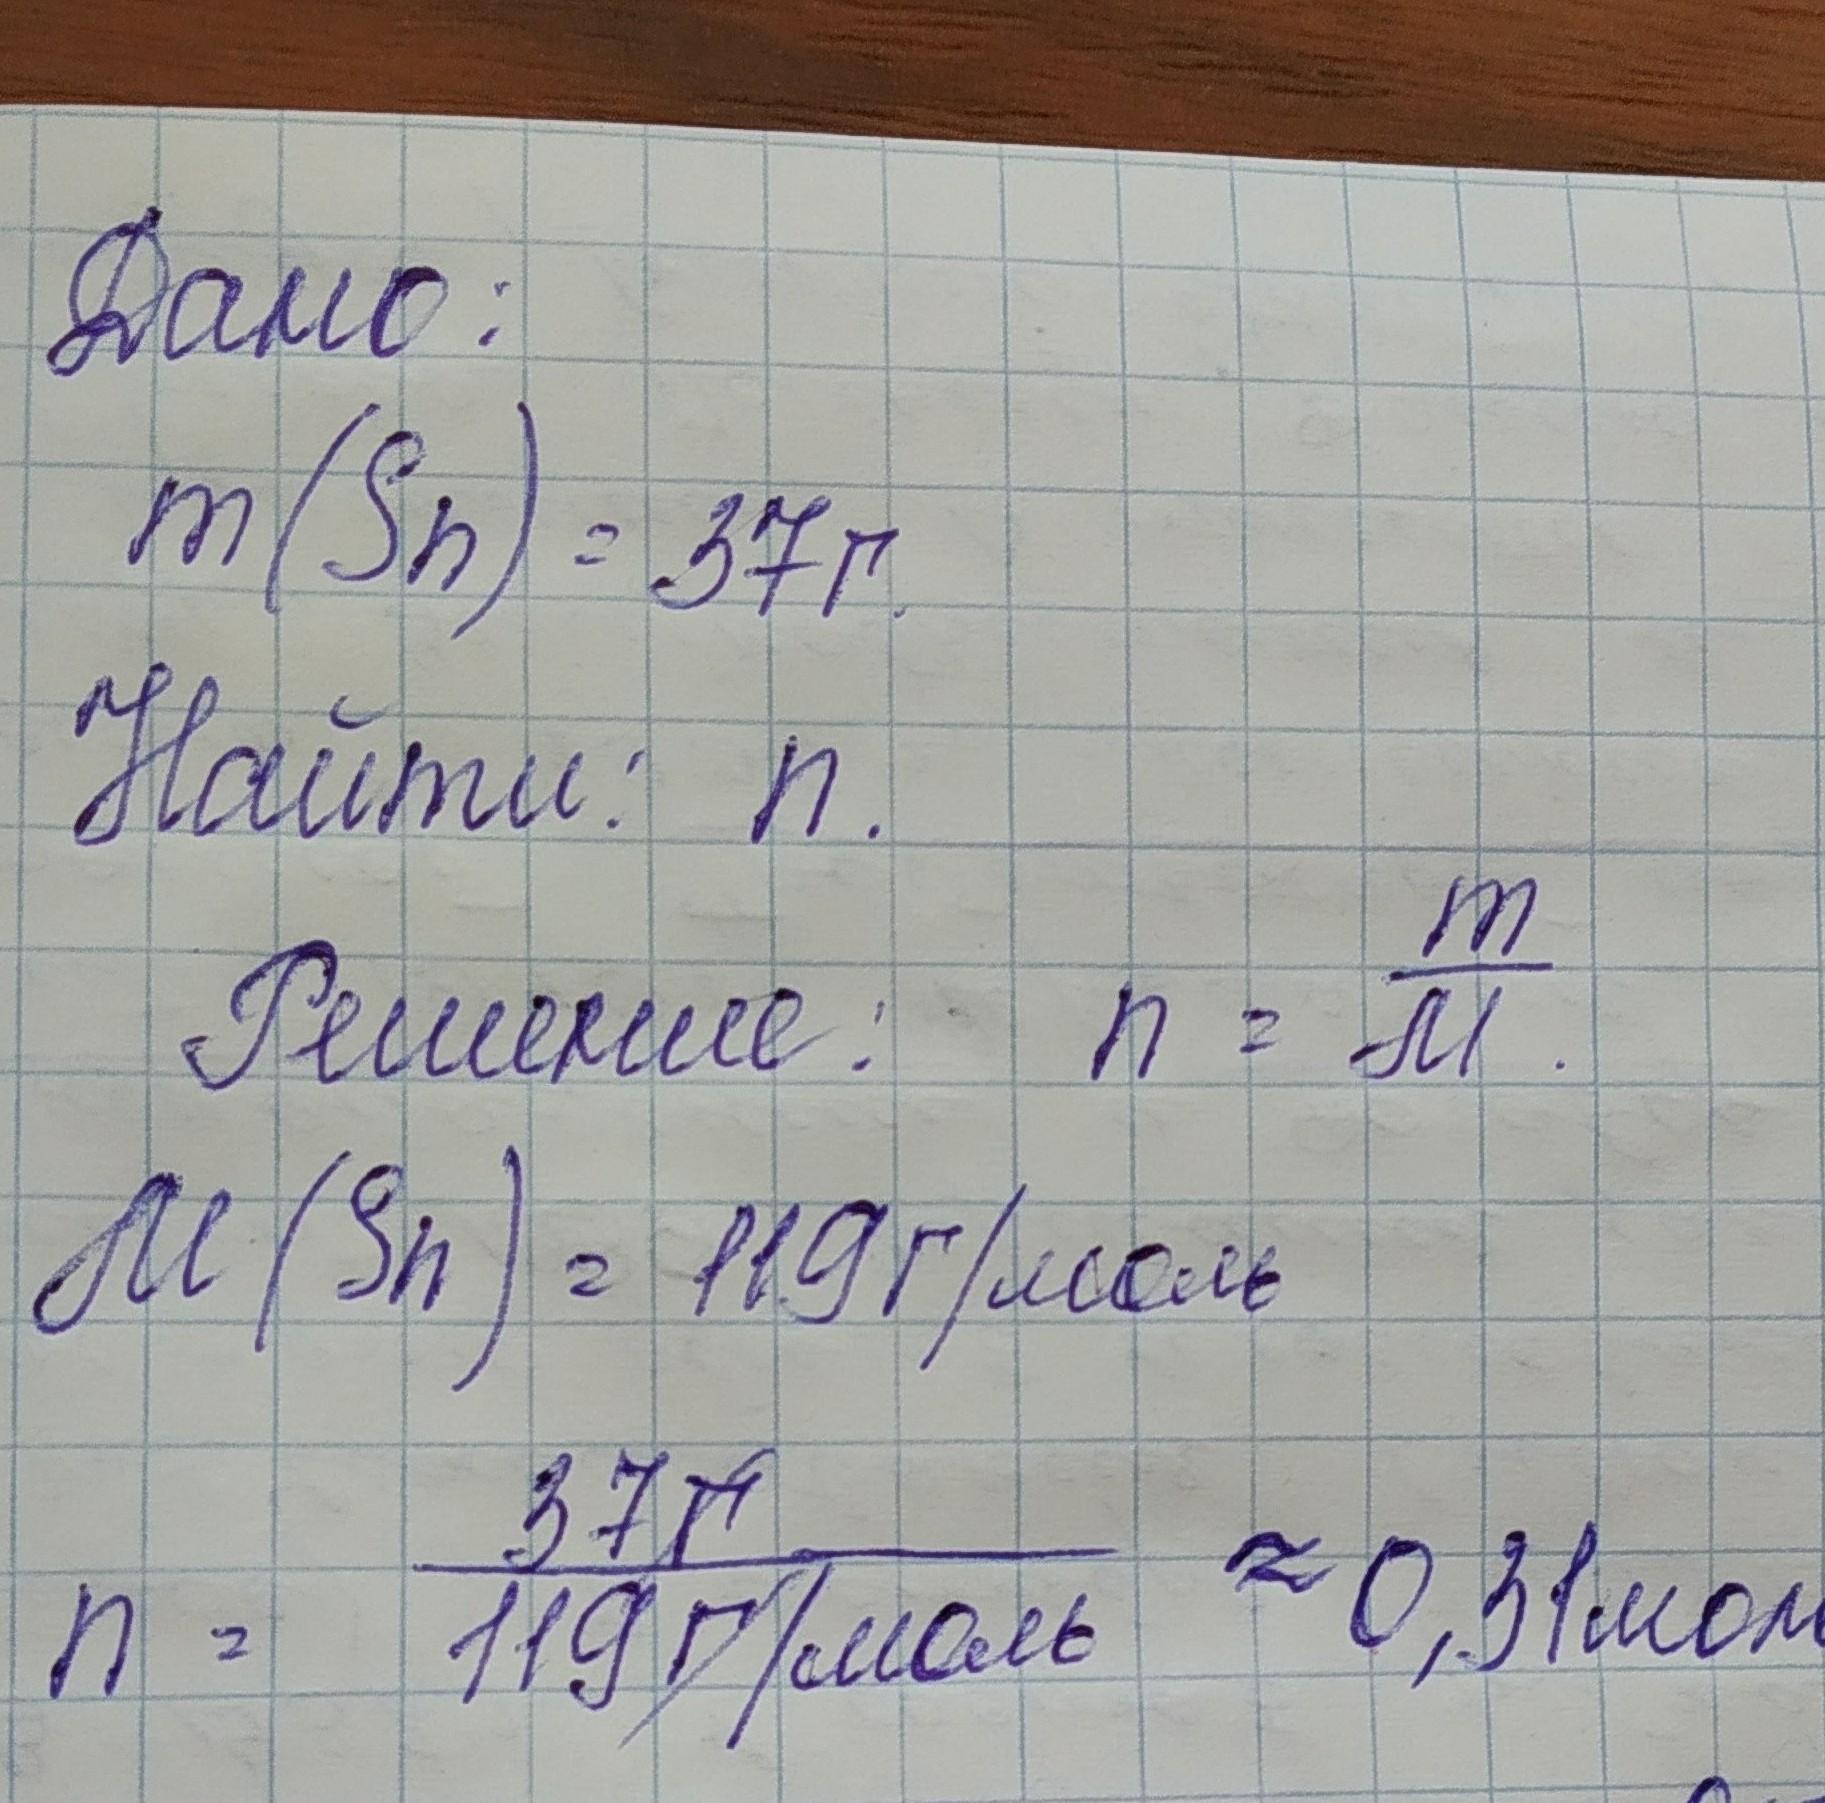 Дано:
m(Sn) = 37г.
Найти: n.
Решение: n = m/M.
M(Sn) = 119г/моль
n = 37г/119г/моль ≈ 0,31мол